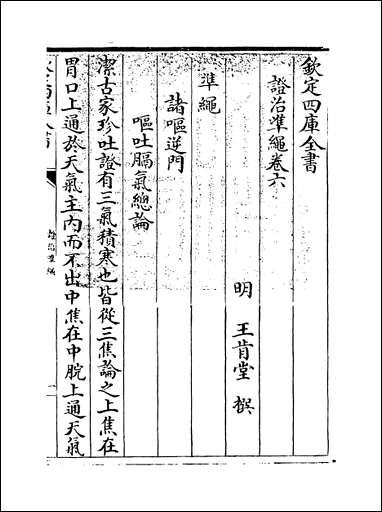 欽定四庫全書
證治準繩卷六
明 王肯堂 撰
準繩
諸嘔逆門
嘔吐膈氣總論
潔古家珍吐證有三氣積寒也皆從三焦論之上焦在
胃口上通於天氣主內而不出中焦在中脘上通天氣